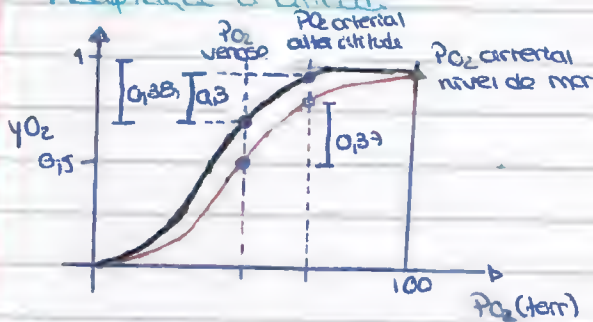 PO₂ venoso
PO₂ arterial
alter altitude
PO₂ arrerial
nivel de mar
1
0,38
0,3
yO₂
0,5
0,37
100
PO₂ (torr)